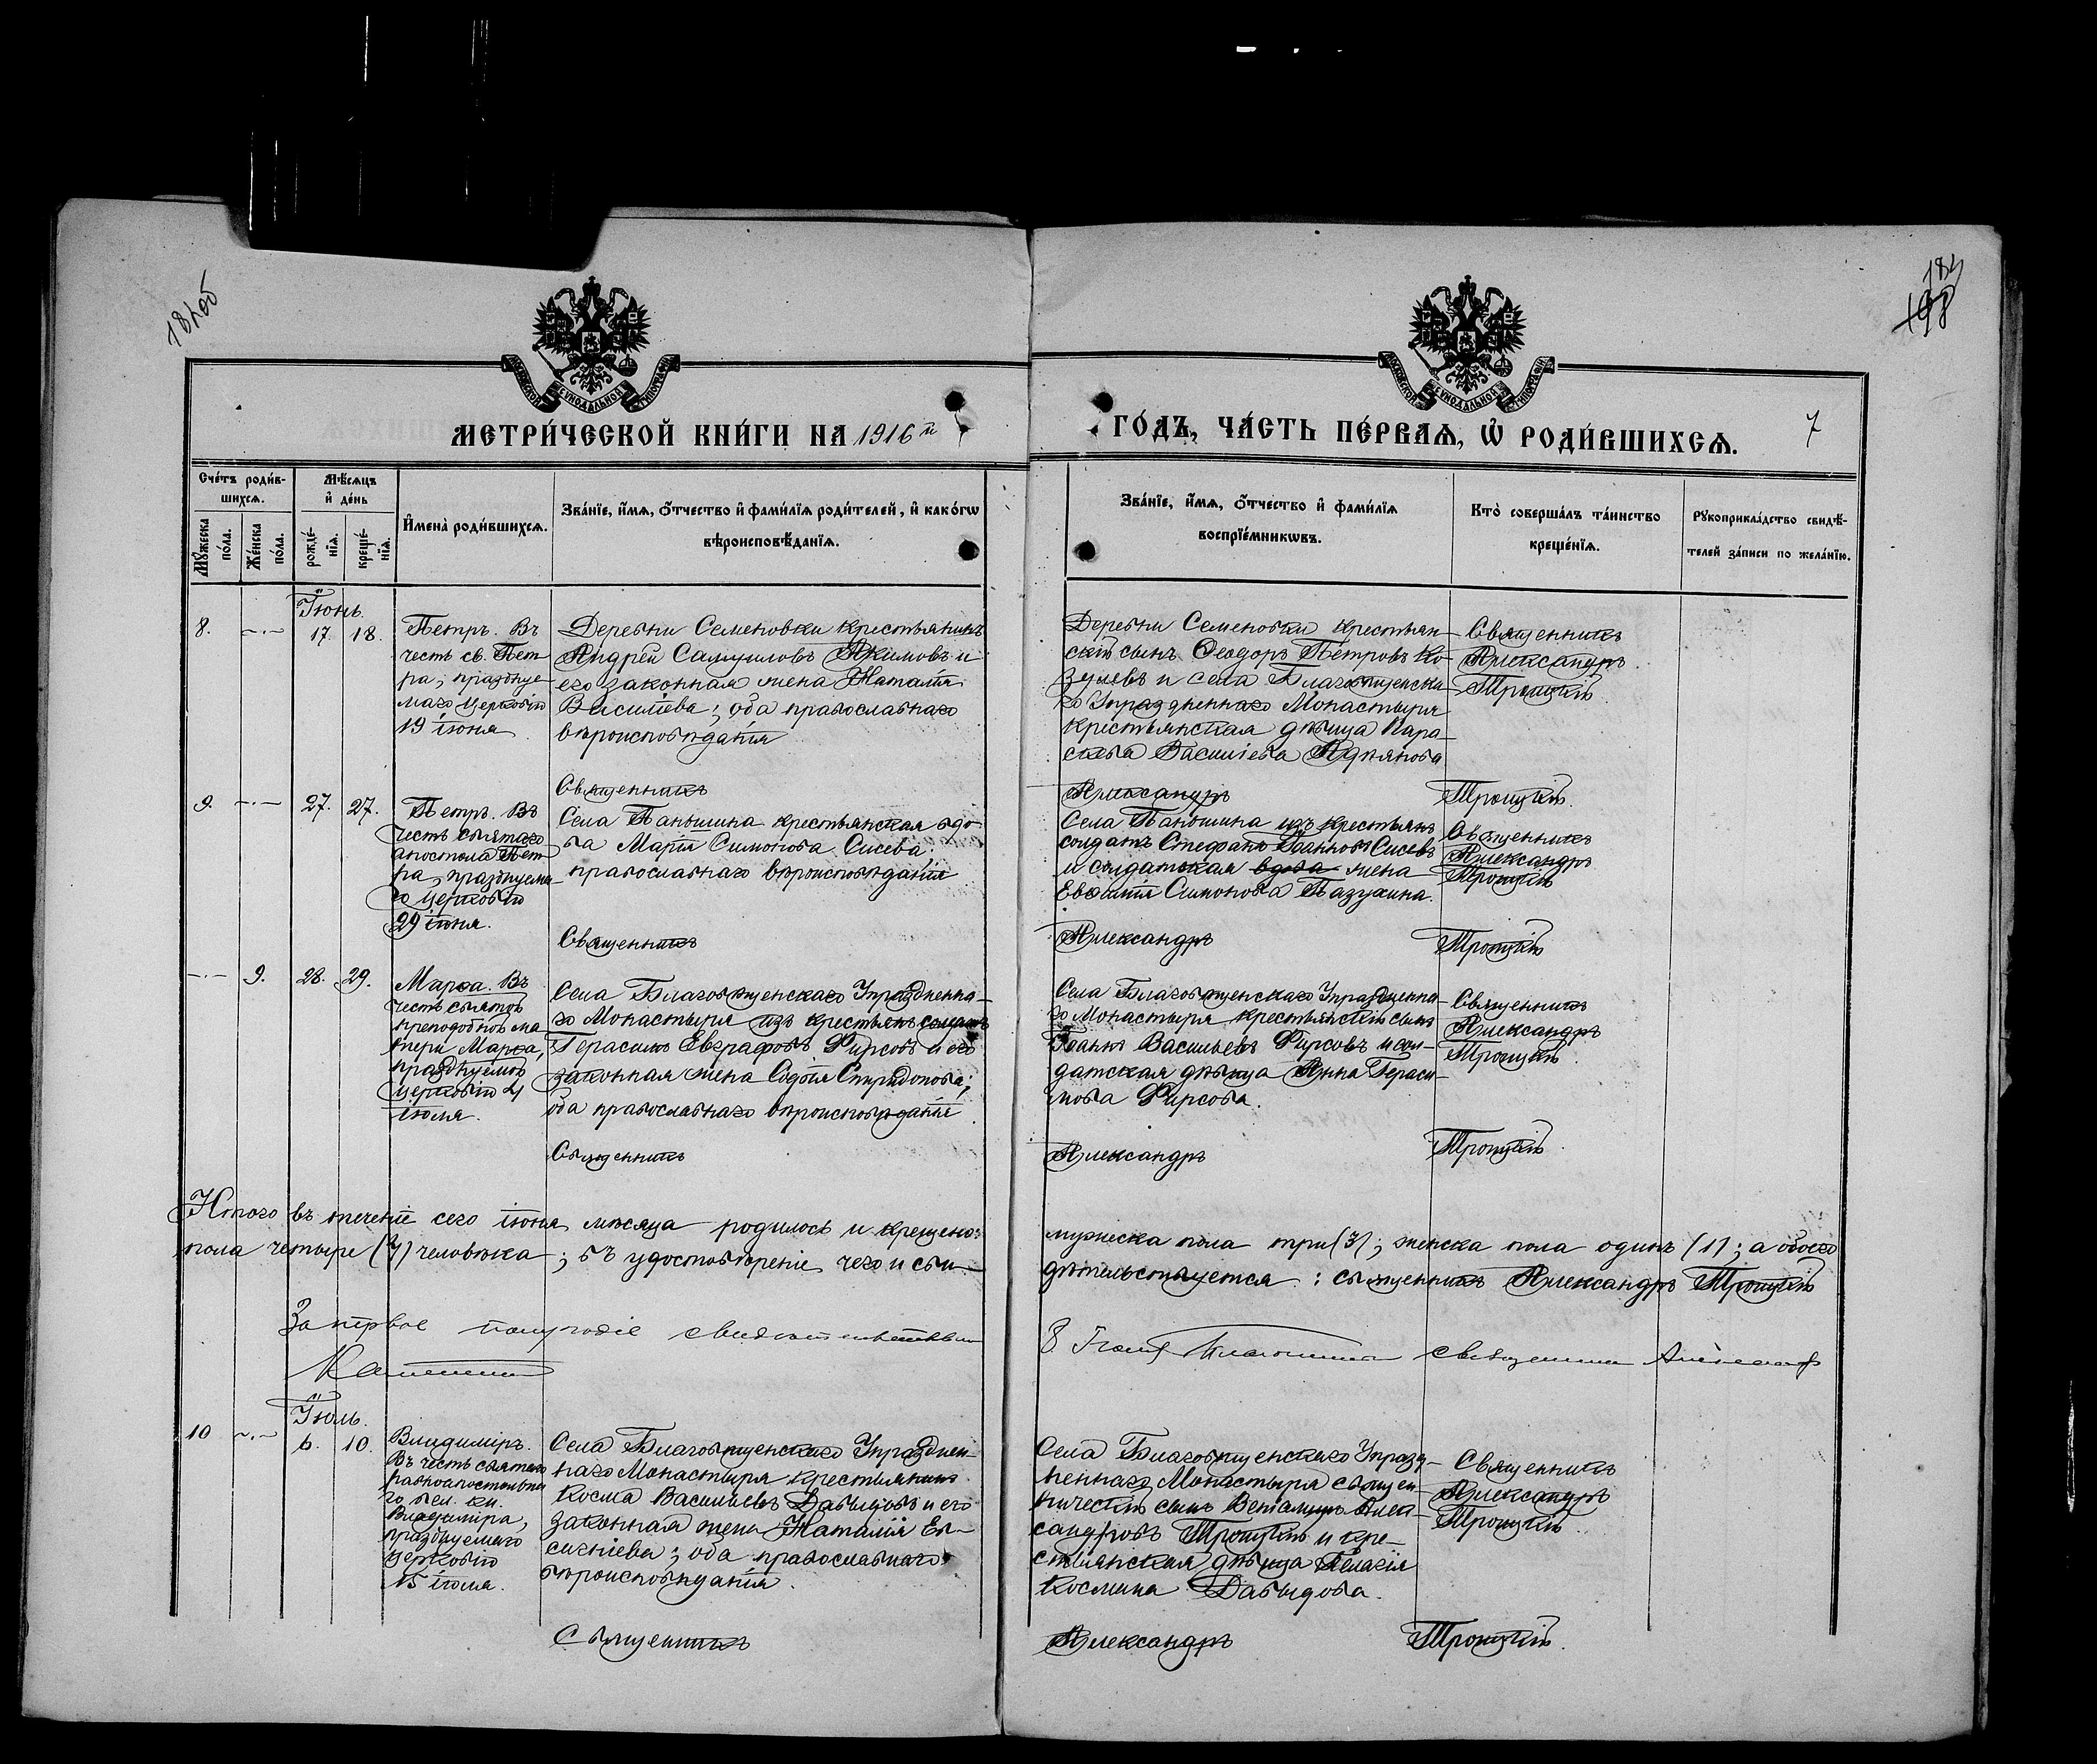 184об
184
198
МОСКОВСКОЙ СѴНОДАЛЬНОЙ ТИПОГРАФІИ
МОСКОВСКОЙ СѴНОДАЛЬНОЙ ТИПОГРАФІИ
МЕТРИ́ЧЕСКОЙ КНИ́ГИ НА 1916й
ГО́ДЪ, ЧА́СТЬ ПЕ́РВАѦ, Ѡ҆ РОДИ́ВШИХСѦ.
7
Сче́тъ роди́в-
шихсѧ.
Мꙋ́жеска
по́ла.
Же́нска
по́ла.
Мѣ́сѧцъ
и҆ де́нь
рожде́-
нїѧ.
креще́-
нїѧ.
И҆мена̀ роди́вшихсѧ.
Зва́нїе, и҆́мѧ, ѻ҆́тчество и҆ фами́лїѧ роди́телей, и҆ како́гѡ
вѣроисповѣ́данїѧ.
Зва́нїе, и҆́мѧ, ѻ҆́тчество и҆ фами́лїѧ
воспрїе́мникѡвъ.
Кто̀ соверша́лъ та́инство
креще́нїѧ.
Рꙋкоприкла́дство свидѣ́-
телей за́писи по жела́нїю.
Іюнь.
8.
17. 18.
Петръ. Въ
честь св. Пет-
ра, празднуе-
маго Церковію
19 іюня
Деревни Семеновки крестьянинъ
Андрей Самуиловъ Акимовъ и
его законная жена Наталія
Василіева; оба православнаго
вѣроисповѣданія
Деревни Семеновки крестьян-
скій сынъ Ѳеодоръ Петровъ Ко-
зуевъ и села Благовѣщенска-
го Упраздненнаго Монастыря
крестьянская дѣвица Пара-
скева Васильева
Священникъ
Александръ
Троицкій.
Священникъ
Александръ
Троицкій.
9.
27. 27.
Петръ. Въ
честь святаго
апостола Пет-
ра, празднуема-
го Церковію
29 іюня.
Села Паньшина крестьянская вдо-
ва Марія Симонова Сисева;
православнаго вѣроисповѣданія
Села Паньшина изъ крестьянъ
солдатъ Стефанъ Іоанновъ Сисевъ
и солдатская вдова жена
Евѳимія Симонова Пазухина.
Священникъ
Александръ
Троицкій
Священникъ
Александръ
Троицкій
9.
28. 29.
Марѳа. Въ
честь святой
преподобной ма-
тери Марѳы,
празднуемой
Церковію 4
іюля.
Села Благовѣщенскаго Упраздненна-
го Монастыря изъ крестьянъ солдатъ
Герасимъ Евграфовъ Фирсовъ и его
законная жена Софія Спиридонова;
оба православнаго вѣроисповѣданія
Села Благовѣщенскаго Упраздненна-
го Монастыря крестьянскій сынъ
Іоаннъ Васильевъ Фирсовъ и сол-
датская дѣвица Анна Гераси-
мова Фирсова.
Священникъ
Александръ
Троицкій.
Священникъ
Александръ
Троицкій.
Итого въ теченіе сего іюня мѣсяца родилось и крещено:
мужеска пола три (3); женска пола одинъ (1); а обоего
пола четыре (4) человѣка; въ удостовѣреніе чего и сви-
дѣтельствуется: священникъ Александръ Троицкій
За первое полугодіе свидѣтельствовалъ
священникъ
Іюль.
10
6. 10.
Владиміръ.
Въ честь святаго
равноапостольна-
го вел. кн.
Владиміра,
празднуемаго
Церковію
15 іюля.
Села Благовѣщенскаго Упразднен-
наго Монастыря крестьянинъ
Косма Васильевъ Давыдовъ и его
законная жена Наталія Ев-
сигніева; оба православнаго
вѣроисповѣданія.
Села Благовѣщенскаго Упразд-
неннаго Монастыря священ-
ническій сынъ Веніаминъ Алек-
сандровъ Троицкій и кре-
стьянская дѣвица Пелагія
Космина Давыдова.
Священникъ
Александръ
Троицкій.
Священникъ
Александръ
Троицкій.